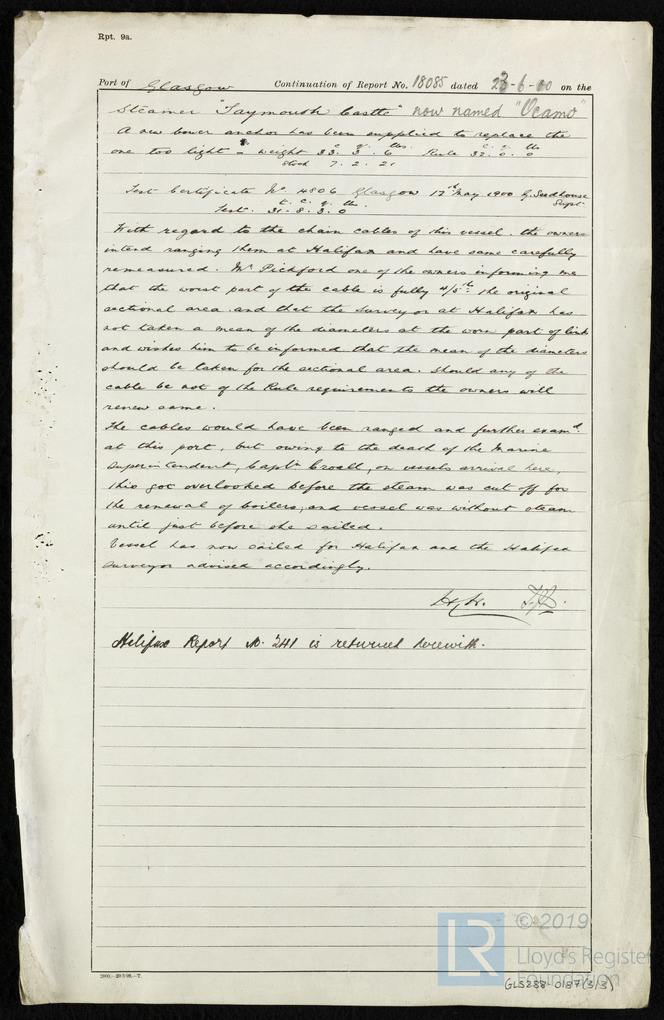 Rpt. 9a.
Port of Glasgow Continuation of Report No. 18085 dated 23-6-00 on the
Steamer "Taymouth Castle" now named "Ocamo"
A new bower anchor has been supplied to replace the
c. q. lbs. c. q. lbs
one too light = weight 33. 3. 6 Rule 32. 0. 0
Stock 7. 2. 21
Test Certificate No. 4806 Glasgow 17th May 1900 Supt.
t. c. q. lbs.
Test. 31. 8. 3. 0
With regard to the chain cables of this vessel. the owners
intend ranging them at Halifax and have same carefully
remeasured. Mr. Pickford one of the owners informing me
that the worst part of the cable is fully 4/5ths the original
sectional area and that the surveyor at Halifax has
not taken a mean of the diameters at the worn part of link
and wishes him to be informed that the mean of the diameters
should be taken for the sectional area. Should any of the
cable be not of the Rule requirements the owners will
renew same.
The cables would have been ranged and further examd.
at this port, but owing to the death of the Marine
Superintendent, Captn. Croall, on vessels arrival here,
this got overlooked before the steam was cut off for
the renewal of boilers, and vessel was without steam
until just before she sailed.
Vessel has now sailed for Halifax and the Halifax
surveyor advised accordingly.
Halifax Report No. 241 is returned herewith.
2000.—29.3.98.—T.
LR
© 2019
Lloyd's Register
Foundation
GLS288-0187(3/3)